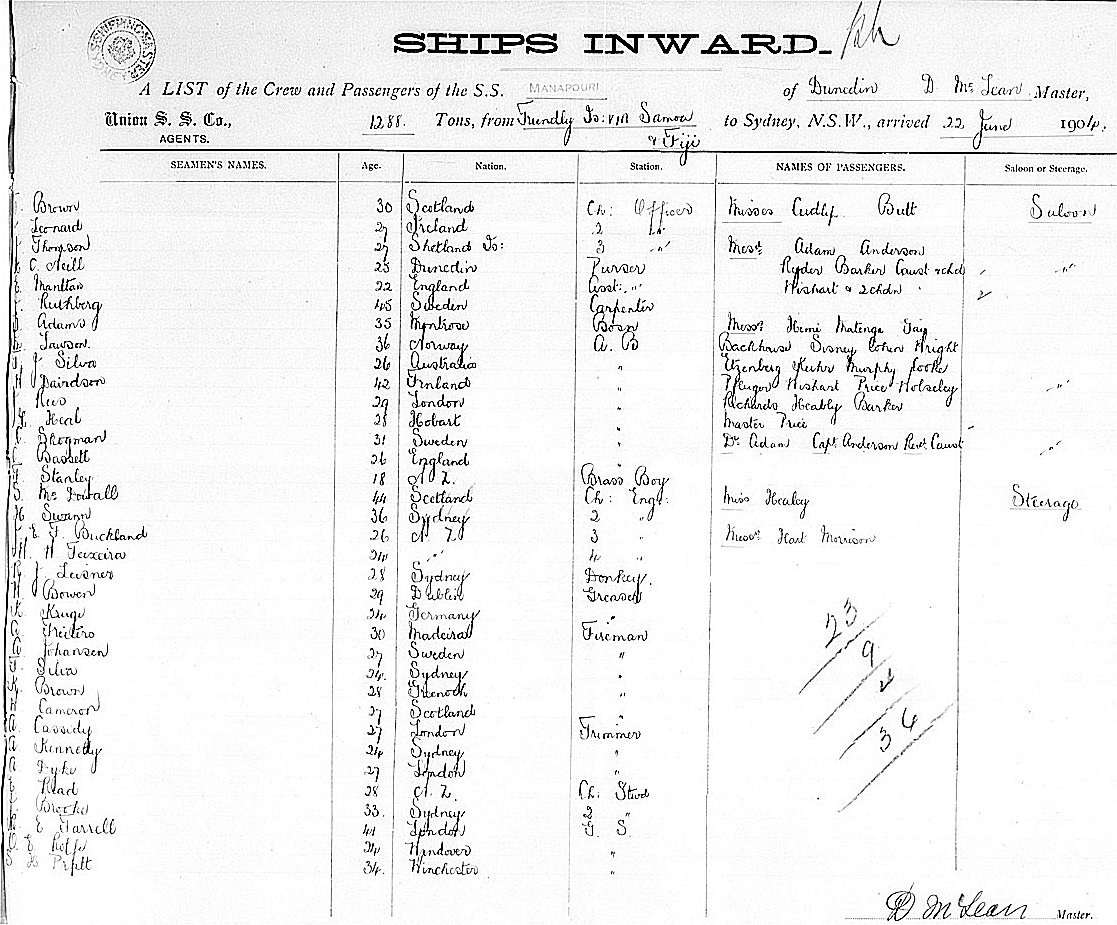 SHIPS INWARD.
A LIST of the Crew and Passengers of the S.S. MANAPOURI of Dunedin D. McLean Master,
Union S. S. Co., AGENTS. 1288. Tons, from Friendly Is: via Samoa & Fiji to Sydney, N.S.W., arrived 22 June 1904.
SEAMEN'S NAMES. Age. Nation. Station. NAMES OF PASSENGERS. Saloon or Steerage.
Brown 30 Scotland Ch: Officer Misses Cudlip Butt Saloon
Leonard 27 Ireland 2 "
Thompson 27 Shetland Is: 3 " Mesds Adam Anderson
O. Neill 25 Dunedin Purser Ryder Barker Caust & chd "
Manttan 22 England Asst: " Wishart & 2 chdn
Ruthberg 45 Sweden Carpenter
Adams 35 Montrose Bosn Messrs Hemi Matenga
Lawson. 36 Norway A. B Backhouse Cohen Wright
J Silva 26 Australia " Etzenberg Kuhn Murphy Cooke
Davidson 42 Finland " Pfluger Wishart Price Wolseley "
Rees 29 London " Richards Heably Barker
Heal 28 Hobart " Master Price
Skogman 31 Sweden " Dr Adam Capt Anderson Revd Caust "
Bassett 26 England "
Stanley 18 N Z. Brass Boy
McDowall 44 Scotland Ch: Engr: Miss Healey Steerage
Swann 36 Sydney 2 "
E. J. Buckland 26 N Z 3 " Messrs Hart Morrison
H. Teixeira 24 " 4 "
J Leisner 28 Sydney Donkey.
Bowen 29 Dublin Greaser
Kruge 24 Germany "
Freitero 30 Madeira Fireman
Johansen 27 Sweden "
Silva 24. Sydney "
Brown 28 Greenock "
Cameron 27 Scotland "
Cassidy 27 London Trimmer
Kennedy 24 Sydney "
Dyke 27 London "
Read 28 N. Z. Ch: Stwd
Brooke 33. Sydney 2 "
E Farrell 41 London F. S.
E Rolfe 24 Handover "
34. Winchester "
23
9
4
36
D McLean Master.